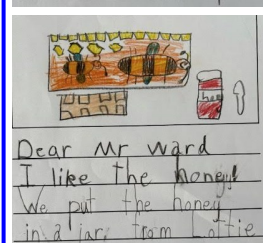 Dear Mr Ward
I like the honey!
We put the honey
in a jar. from Lottie